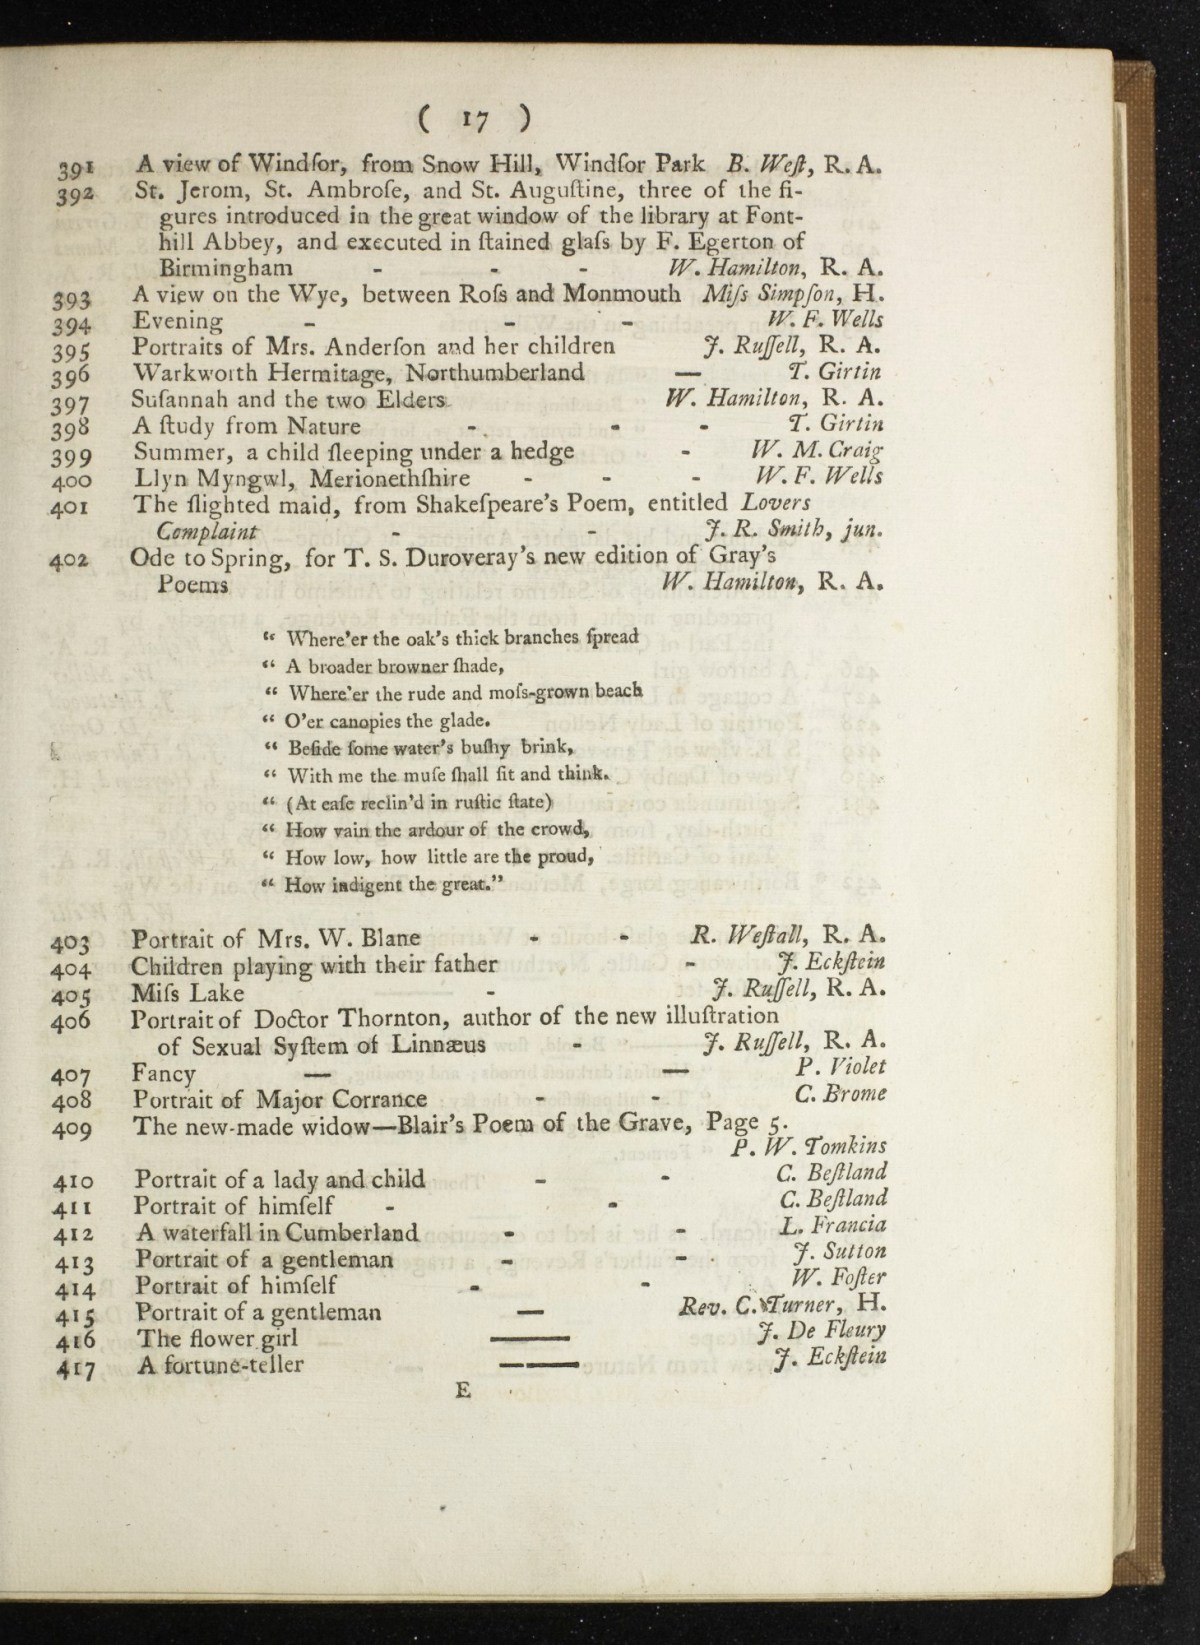 ( 17 )
391 A view of Windſor, from Snow Hill, Windſor Park B. Weſt, R. A.
392 St. Jerom, St. Ambroſe, and St. Auguſtine, three of the fi-
gures introduced in the great window of the library at Font-
hill Abbey, and executed in ſtained glaſs by F. Egerton of
Birmingham - - - W. Hamilton, R. A.
393 A view on the Wye, between Roſs and Monmouth Miſs Simpſon, H.
394 Evening - - - W. F. Wells
395 Portraits of Mrs. Anderſon and her children J. Ruſſell, R. A.
396 Warkworth Hermitage, Northumberland — T. Girtin
397 Suſannah and the two Elders W. Hamilton, R. A.
398 A ſtudy from Nature - - - T. Girtin
399 Summer, a child ſleeping under a hedge - W. M. Craig
400 Llyn Myngwl, Merionethſhire - - - W. F. Wells
401 The ſlighted maid, from Shakeſpeare's Poem, entitled Lovers
Complaint - - J. R. Smith, jun.
402 Ode to Spring, for T. S. Duroveray's new edition of Gray's
Poems W. Hamilton, R. A.
“ Where'er the oak's thick branches ſpread
“ A broader browner ſhade,
“ Where'er the rude and moſs-grown beach
“ O'er canopies the glade.
“ Beſide ſome water's buſhy brink,
“ With me the muſe ſhall ſit and think.
“ (At eaſe reclin'd in ruſtic ſtate)
“ How vain the ardour of the crowd,
“ How low, how little are the proud,
“ How indigent the great.”
403 Portrait of Mrs. W. Blane - - R. Weſtall, R. A.
404 Children playing with their father - J. Eckſtein
405 Miſs Lake - J. Ruſſell, R. A.
406 Portrait of Doctor Thornton, author of the new illuſtration
of Sexual Syſtem of Linnæus - J. Ruſſell, R. A.
407 Fancy — — P. Violet
408 Portrait of Major Corrance - - C. Brome
409 The new-made widow—Blair's Poem of the Grave, Page 5.
P. W. Tomkins
410 Portrait of a lady and child - - C. Beſtland
411 Portrait of himſelf - - C. Beſtland
412 A waterfall in Cumberland - - L. Francia
413 Portrait of a gentleman - - J. Sutton
414 Portrait of himſelf - - W. Foſter
415 Portrait of a gentleman — Rev. C. Turner, H.
416 The flower girl —— J. De Fleury
417 A fortune-teller —— J. Eckſtein
E